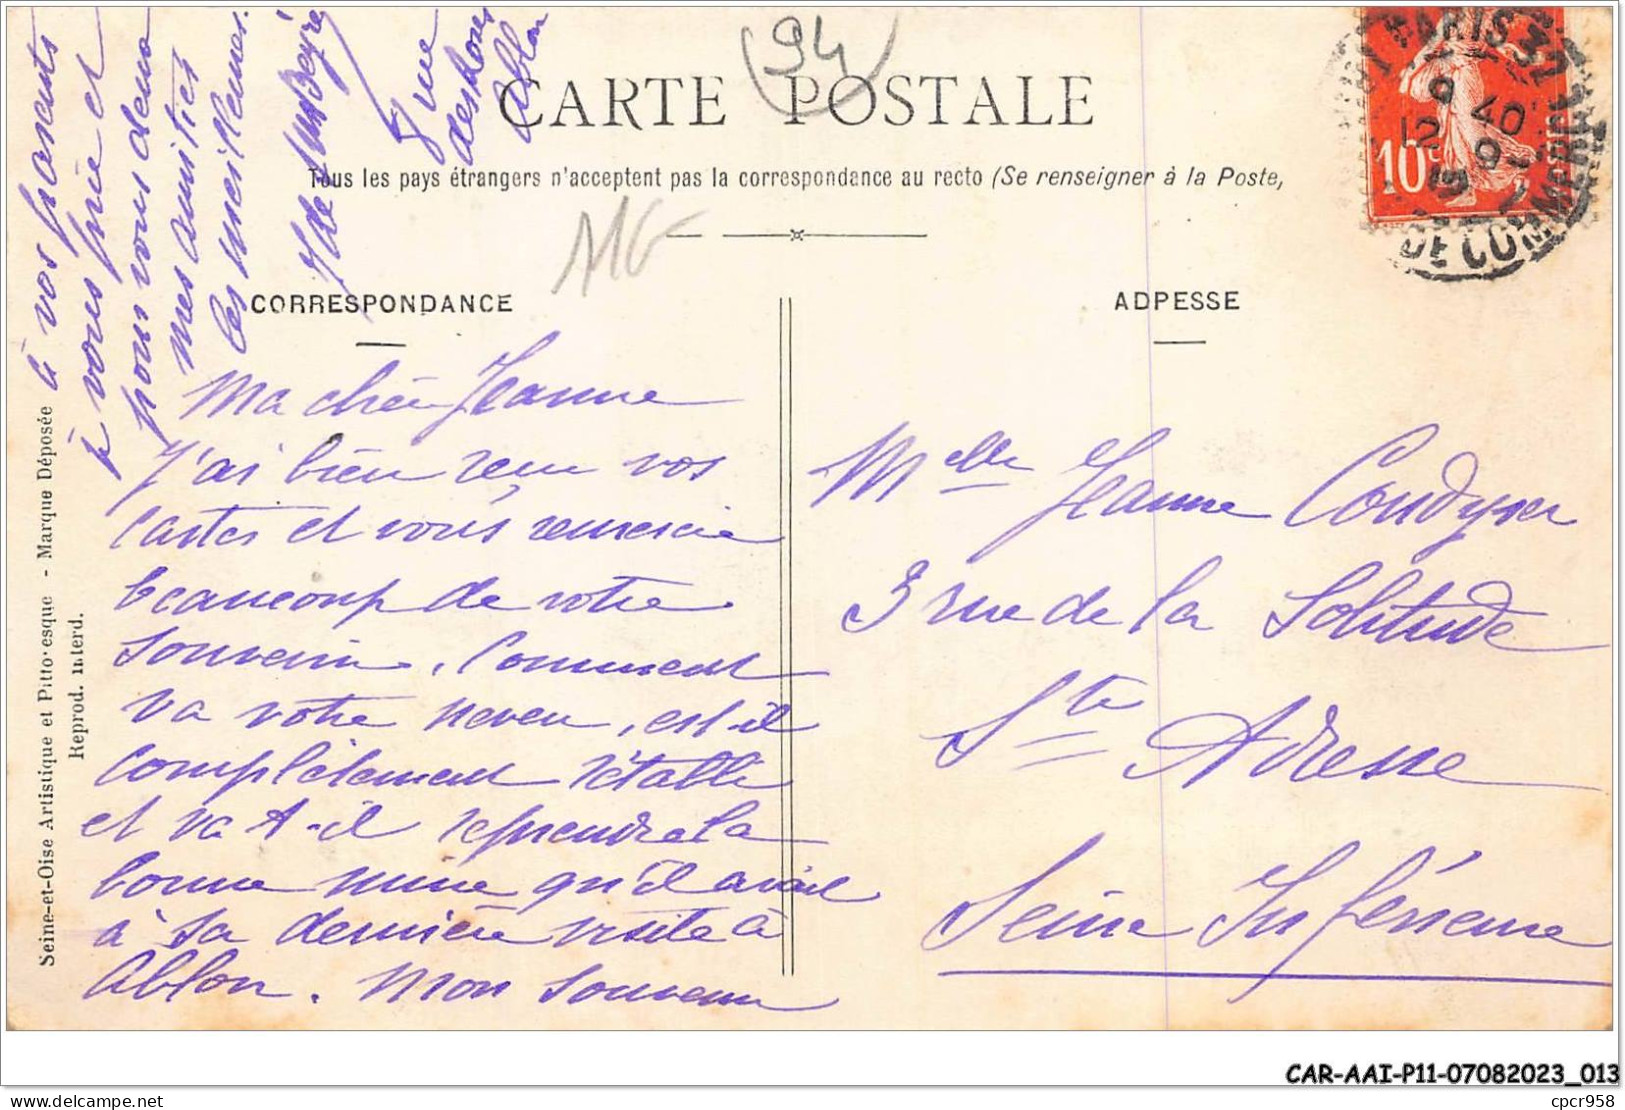 (94)
CARTE POSTALE
Tous les pays étrangers n'acceptent pas la correspondance au recto (Se renseigner à la Poste,
PARIS 31
9 40
12 9
DE COMMERCE
10c
CORRESPONDANCE
ADRESSE
Ma chère Jeanne
J'ai bien reçu vos
cartes et vous remercie
beaucoup de votre
souvenir. Comment
va votre neveu, est-il
complètement rétabli
et va t-il reprendre la
bonne mine qu'il avait
à sa dernière visite à
Ablon. Mon souvenir
à vos parents
je vous prie et
pour vous dema
mes amitiés
les meilleures.
8 rue
Ablon
Melle Jeanne Coudyser
3 rue de la Solitude
Ste Adresse
Seine Inférieure
Seine-et-Oise Artistique et Pittoresque - Marque Déposée
Reprod. interd.
CAR-AAI-P11-07082023_013
delcampe.net
cpcr958